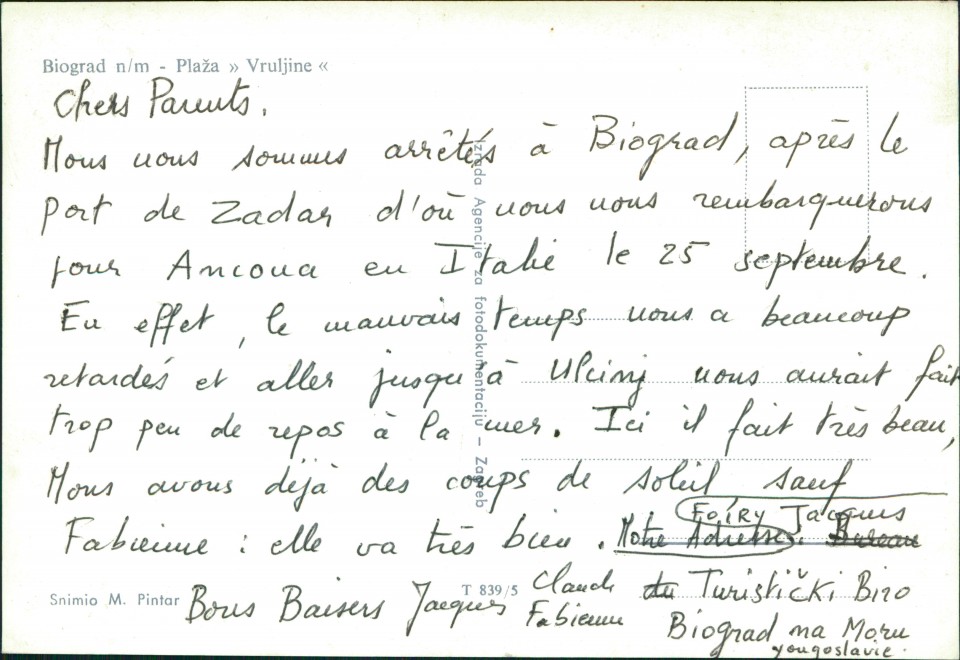 Biograd n/m - Plaža » Vruljine «
Chers Parents.
Nous nous sommes arrêtés à Biograd, après le
port de Zadar d'où nous nous rembarquerons
pour Ancona en Italie le 25 septembre.
En effet, le mauvais temps nous a beaucoup
retardés et aller jusqu'à Ulcinj nous aurait fait
trop peu de repos à la mer. Ici il fait très beau,
Nous avons déjà des coups de soleil sauf
Fabienne : elle va très bien. Notre Adresse. Bureau
FOIRY Jacques
du Turistički Biro
Biograd na Moru
yougoslavie.
Bons Baisers Jacques Claude
Fabienne
Izrada Agencije za fotodokumentaciju – Zagreb
Snimio M. Pintar
T 839/5